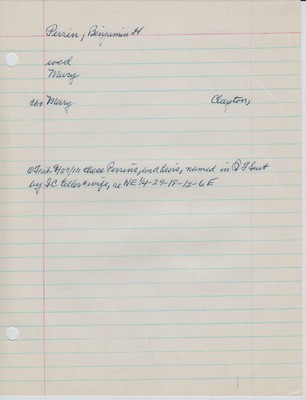 Perrin, Benjamin H
wed
Mary
ch: Mary Clayton,
Trib 9/27/11 these Perrins, and heirs, named in Q T Suit
by S.C. Feller & wife, re NE 1/4-29-18-12-6E